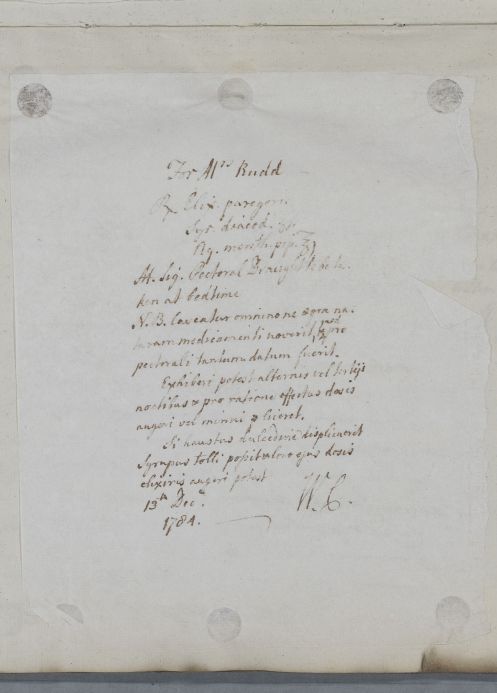 For Mrs Rudd
℞ Elix. paregor.
Syr. diacod. ʒi.
Aq. menth. pip. ℥j
M. Sig. Pectoral Draught to be ta-
ken at bedtime
N.B. Caveatur omnino ne ægra na-
turam medicamenti noverit, sed pro
pectorali tantum datum fuerit.
Exhiberi potest alternis vel tertijs
noctibus & pro ratione effectus dosis
augeri vel minui
Si haustus dulcedine displicuerit
Syrupus tolli ejus dosis
elixiris augeri potest
13th Decr
1784.
W. C.